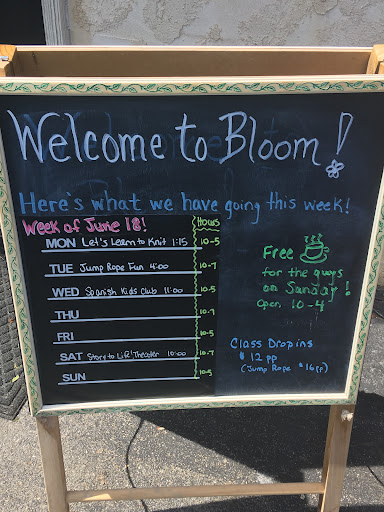 Welcome to Bloom!
Here's what we have going this week!
Week of June 18!
Hours
MON Let's Learn to Knit 1:15 10-5
TUE Jump Rope Fun 4:00 10-7
WED Spanish Kids Club 11:00 10-5
THU 10-7
FRI 10-5
SAT Story to Life Theater 10:00 10-7
SUN 10-5
Free
for the guys
on Sunday!
Open 10-4
Class Dropins
$12 pp
(Jump Rope $16pp)